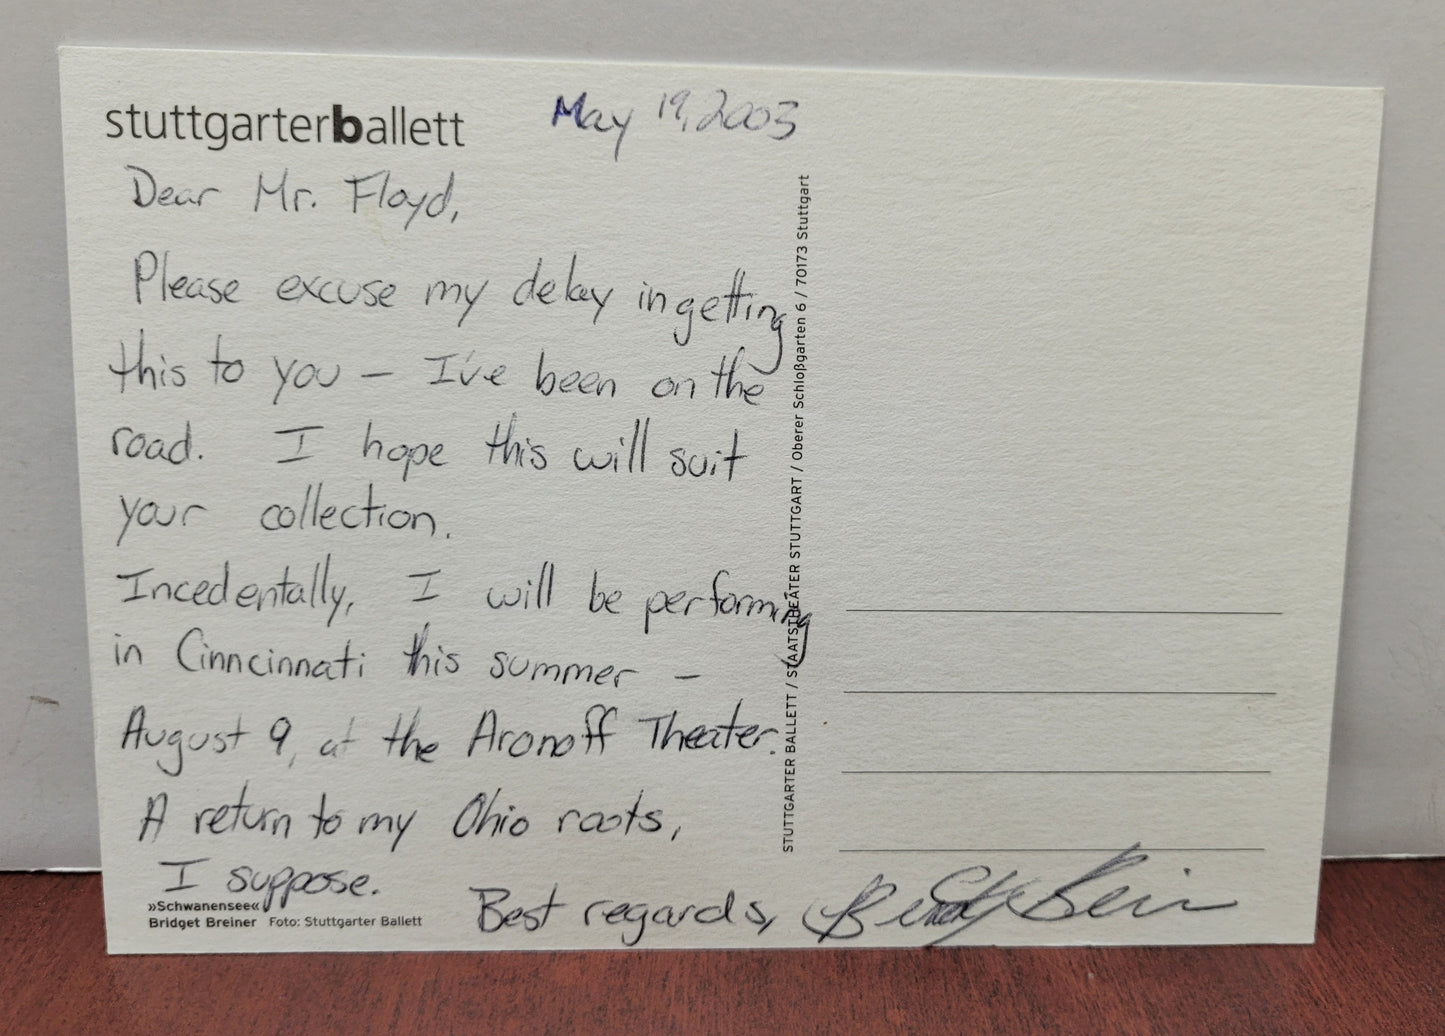 stuttgarterballett
May 19, 2003
Dear Mr. Floyd,
Please excuse my delay in getting
this to you – I've been on the
road. I hope this will suit
your collection.
Incedentally, I will be performing
in Cinncinnati this summer –
August 9, at the Aronoff Theater.
A return to my Ohio roots,
I suppose.
Best regards, Bridget Breiner
»Schwanensee«
Bridget Breiner Foto: Stuttgarter Ballett
STUTTGARTER BALLETT / STAATSTHEATER STUTTGART / Oberer Schloßgarten 6 / 70173 Stuttgart